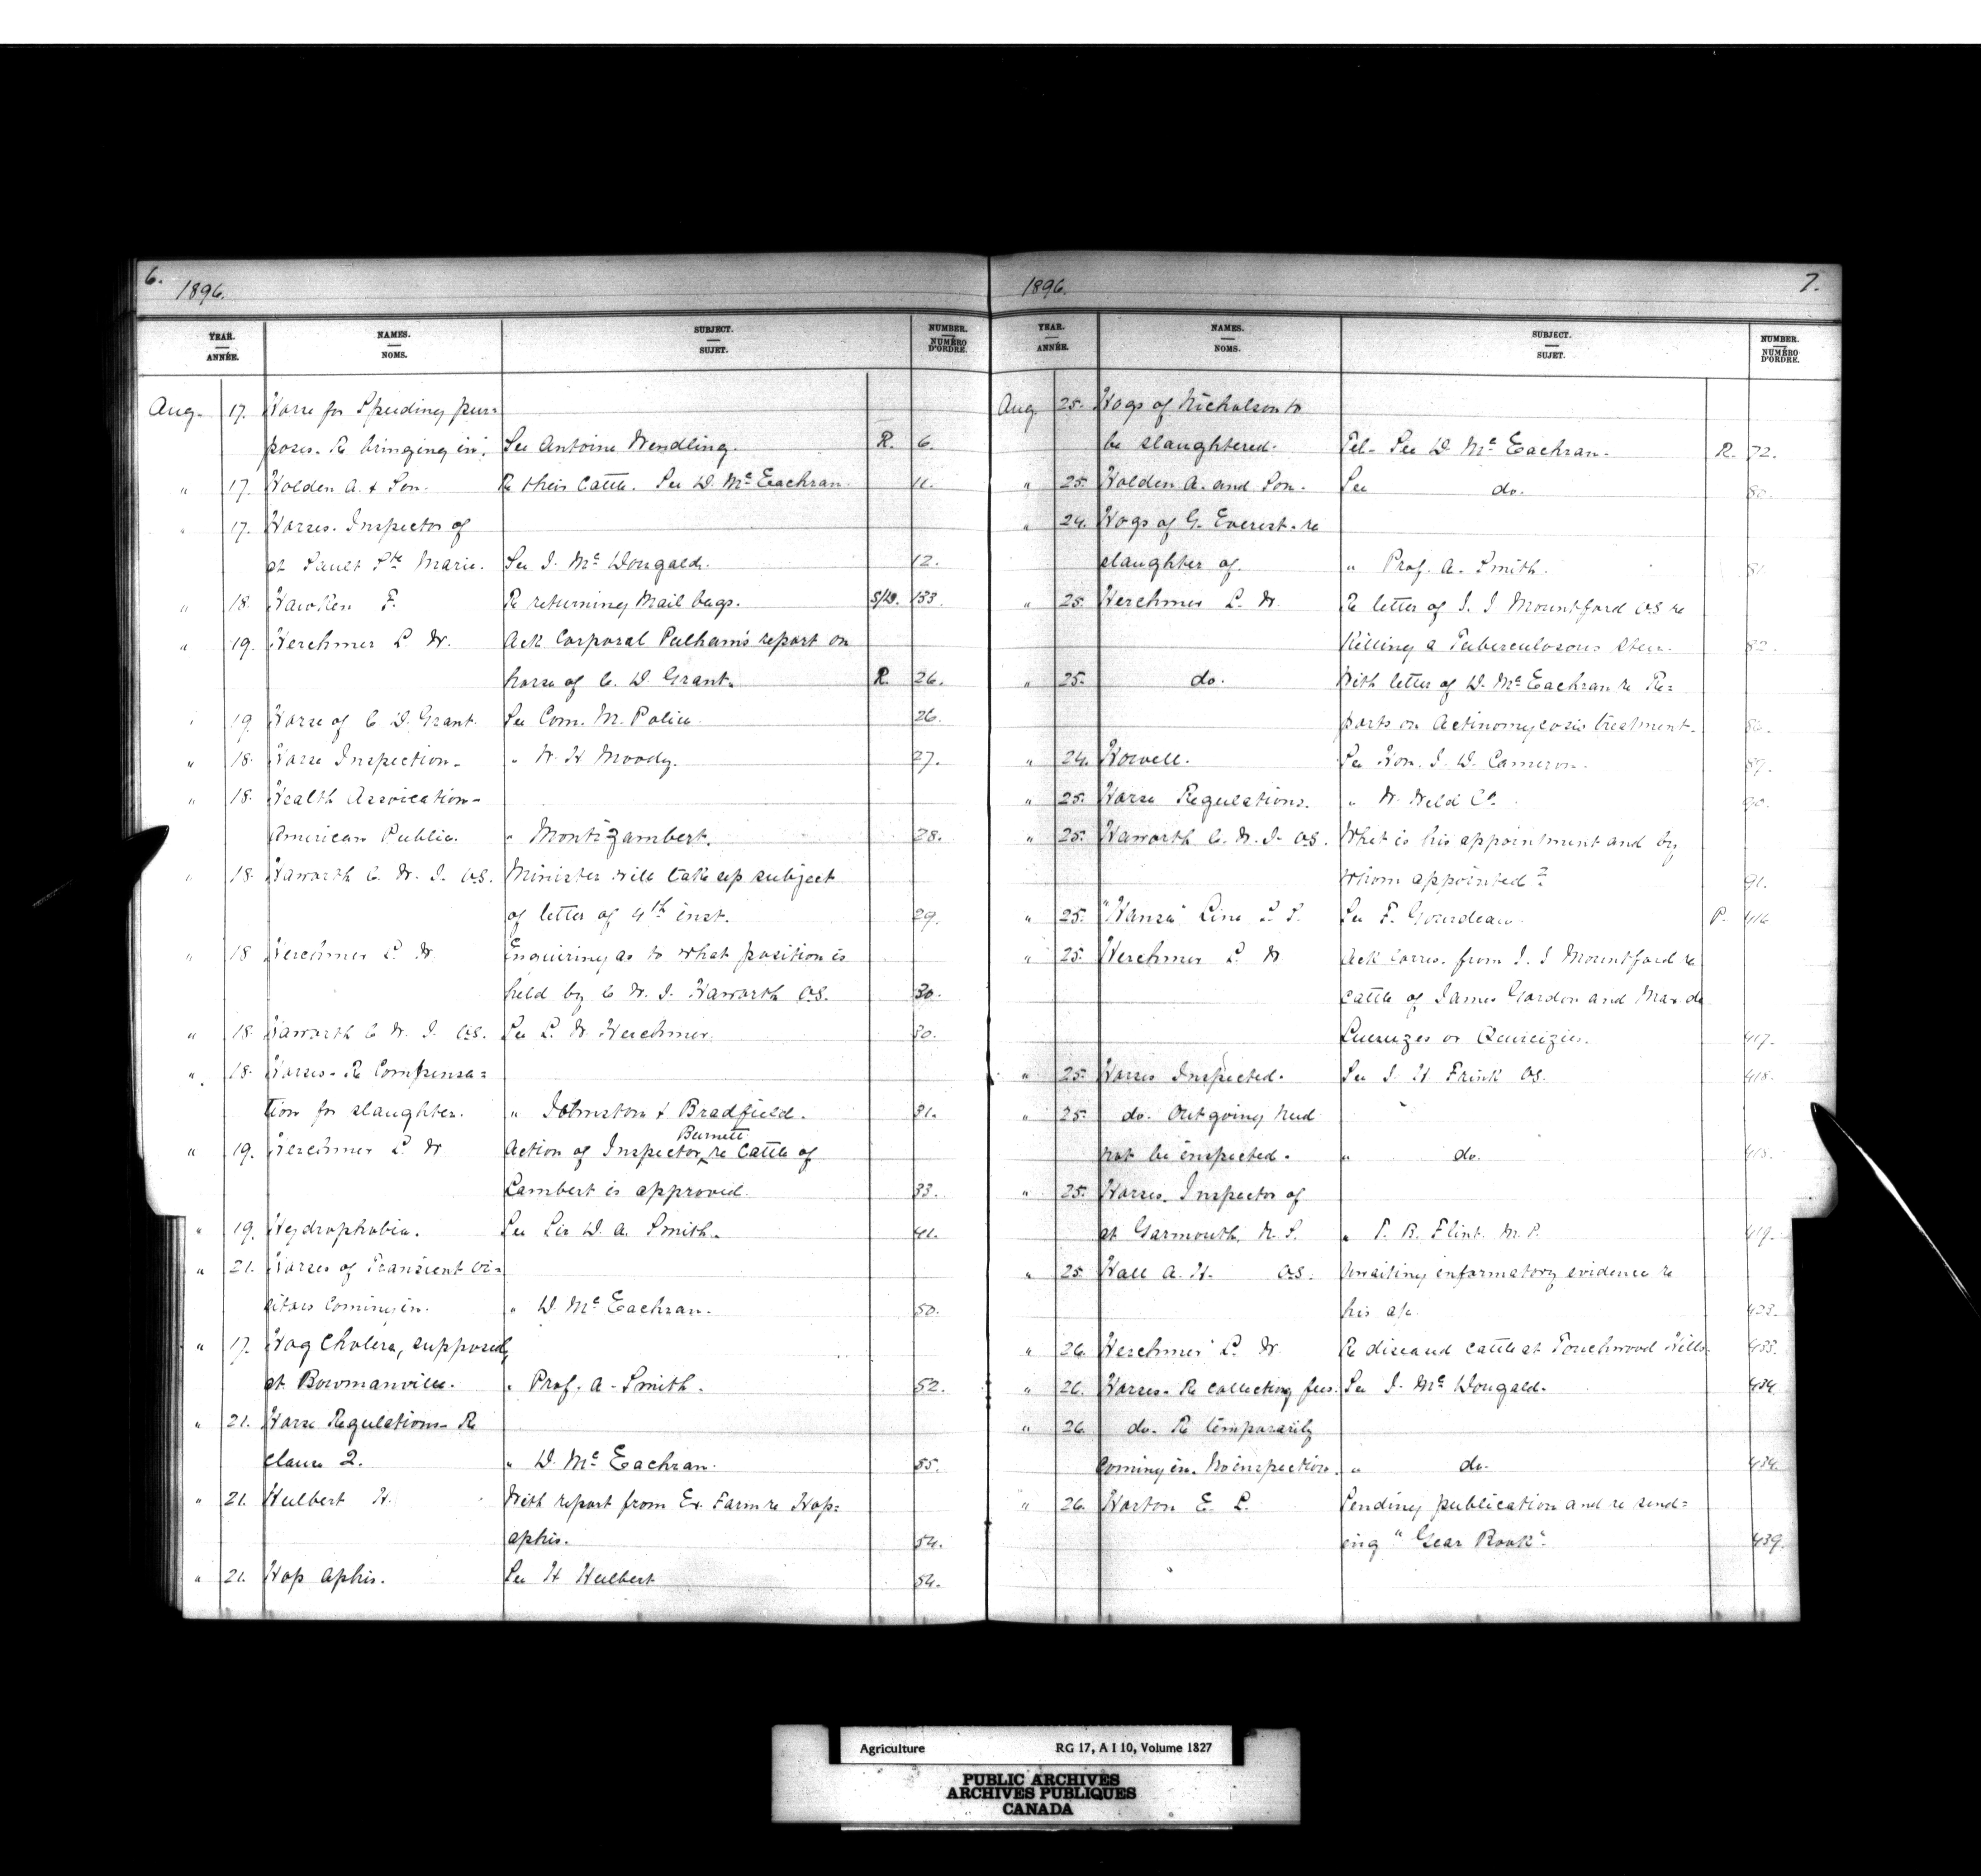 6.
1896.
YEAR. ANNÉE. NAMES. NOMS. SUBJECT. SUJET. NUMBER. NUMÉRO D'ORDRE.
Aug. 17. Horse for Speeding pur=
poses. Re bringing in. See Antoine Wendling. R. 6.
" 17. Holden A. & Son. Re their Cattle. See D. McEachran. 11.
" 17. Horses. Inspector of
at Sault Ste Marie. See J. McDougald. 12.
" 18. Hawken F. Re returning Mail bags. S/D. 133.
" 19. Herchmer L. W. Ack Corporal Pelham's report on
horse of C. D. Grant. R. 26.
" 19. Horse of C D. Grant. See Com. M. Police. 26.
" 18. Horse Inspection. " W. H Moody. 27.
" 18. Health Association-
American Public. " Montizambert. 28.
" 18. Haworth C. W. J. VS. Minister will take up subject
of letter of 4th inst. 29.
" 18 Herchmer L. W. Enquiring as to what position is
held by C W. J. Haworth VS. 30.
" 18 Haworth C W. J. VS. See L. W Herchmer. 30.
" 18. Horses- Re Compensa=
tion for slaughter. " Johnston & Bradfield. 31.
" 19. Herchmer L. W Action of Inspector Burnett re Cattle of
Lambert is approved. 33.
" 19. Hydrophobia. See Sir D. A. Smith. 41.
" 21. Horses of Transient Vi=
sitors coming in. " D. McEachran. 50.
" 17. Hog Cholera, supposed,
at Bowmanville. " Prof. A. Smith. 52.
" 21. Horse Regulations- Re
clause 2. " D. McEachran. 55.
" 21. Hulbert H. With report from Ex. Farm re Hop=
aphis. 54.
" 21. Hop Aphis. See H Hulbert 54.
1896.
7.
YEAR. ANNÉE. NAMES. NOMS. SUBJECT. SUJET. NUMBER. NUMÉRO D'ORDRE.
Aug. 25. Hogs of Nicholson to
be slaughtered. Tel- See D. McEachran. R. 72.
" 25. Holden A. and Son. See do. 80.
" 24. Hogs of G. Everest. re
slaughter of " Prof. A. Smith. 81.
" 25. Herchmer L. W. Re letter of J. J Mountford VS re
Killing a Tuberculosous Steer. 82.
" 25. do. With letter of D. McEachran re Re=
ports on Actinomycosis treatment. 86.
" 24. Howell. See Hon. J. D. Cameron. 89.
" 25. Horse Regulations. " W. Weld Co. 90.
" 25. Haworth C. W. J. VS. What is his appointment and by
whom appointed? 91.
" 25. "Hansa" Line S. S. See F. Gourdeau. P. 416
" 25. Herchmer L. W Ack Corres. from J. J Mountford re
cattle of James Gordon and Max de
417.
" 25. Horses Inspected. See J. H Frink VS. 418.
" 25. do. Outgoing need
not be inspected. " do. 418.
" 25. Horses. Inspector of
at Yarmouth. N. S. " T. B. Flint. M.P. 419.
" 25 Hall A. H. VS. Awaiting informatory evidence re
his a/c. 423.
" 26. Herchmer L. W. Re diseased cattle at Touchwood Hills. 433.
" 26. Horses- Re collecting fees. See J. McDougald. 434.
" 26. do. Re temporarily
coming in. No inspection. " do. 434.
" 26. Horton E. L. Pending publication and re send=
ing "Year Book". 439.
Agriculture RG 17, A I 10, Volume 1827
PUBLIC ARCHIVES
ARCHIVES PUBLIQUES
CANADA